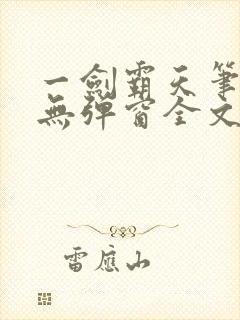 一劍霸天筆
無彈窗全文
雷應山